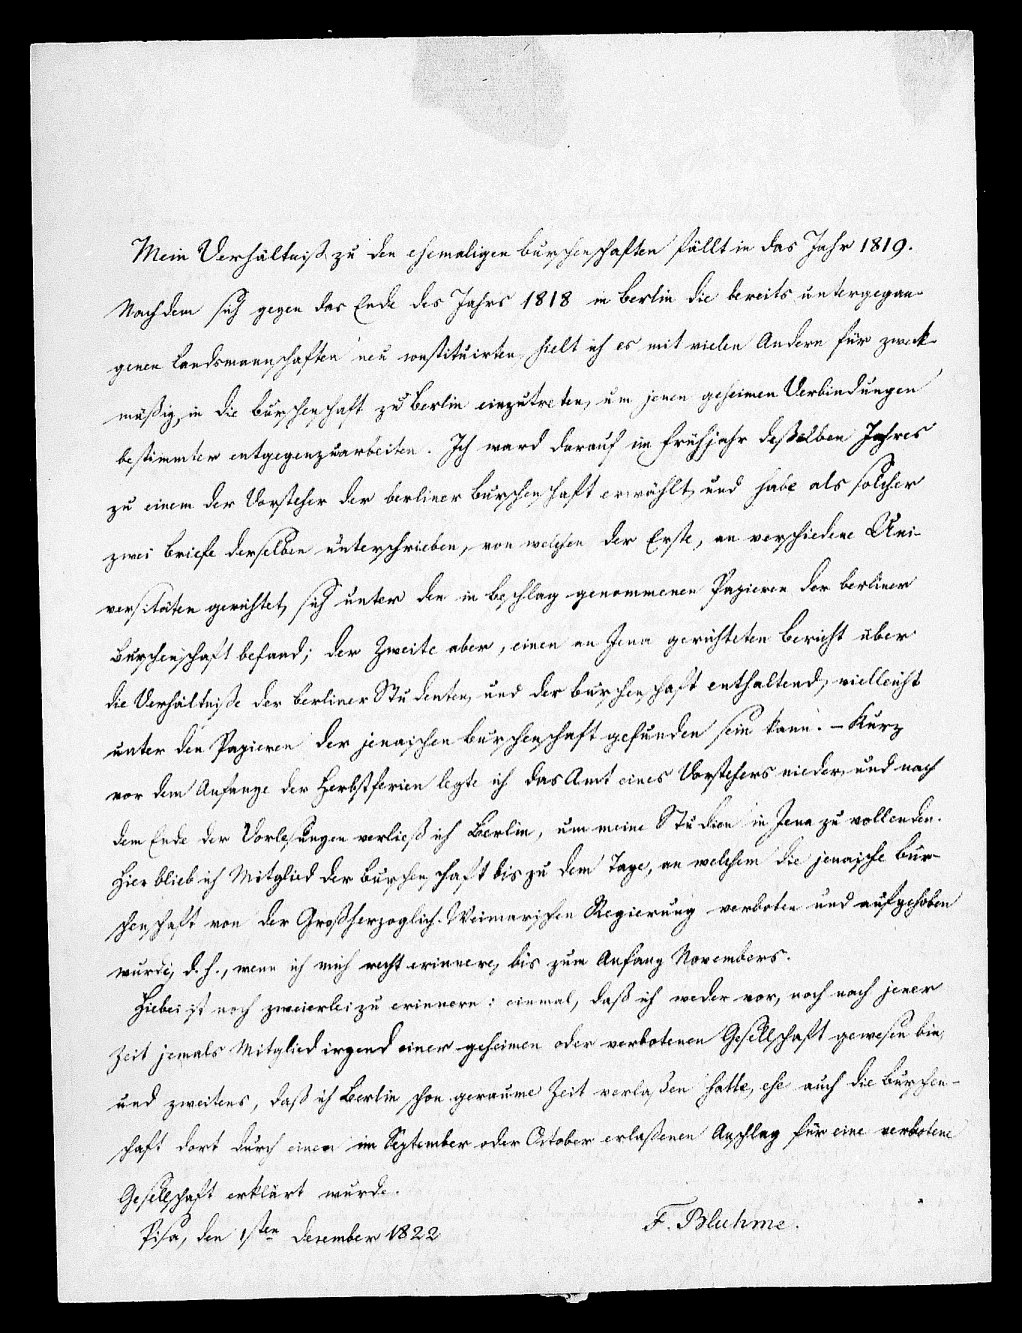 Mein Verhältniß zu den ehemaligen Burschenschaften fällt in das Jahr 1819.
Nachdem sich gegen das Ende des Jahrs 1818 in Berlin die bereits untergegan-
genen Landsmannschaften neu constituirten, hielt ich es mit vielen Andern für zweck-
mäßig, in die Burschenschaft zu Berlin einzutreten, um jenen geheimen Verbindungen
bestimmter entgegenzuarbeiten. Ich ward darauf im Frühjahr desselben Jahres
zu einem der Vorsteher der berliner Burschenschaft erwählt, und habe als solcher
zwei Briefe derselben unterschrieben, von welchen der Erste, an verschiedene Uni-
versitäten gerichtet, sich unter den in Beschlag genommenen Papieren der berliner
Burschenschaft befand; der Zweite aber, einen an Jena gerichteten Bericht über
die Verhältniße der berliner Studenten, und der Burschenschaft enthaltend, vielleicht
unter den Papieren der jenaischen Burschenschaft gefunden sein kann. – Kurz
vor dem Anfange der Herbstferien legte ich das Amt eines Vorstehers nieder, und nach
dem Ende der Vorlesungen verließ ich Berlin, um meine Studien in Jena zu vollenden.
Hier blieb ich Mitglied der Burschenschaft bis zu dem Tage, an welchem die jenaische Bur-
schenschaft von der Großherzoglich-Weimarischen Regierung verboten und aufgehoben
wurde, d. h., wenn ich mich recht erinnere, bis zum Anfang Novembers.
Hiebei ist noch zweierlei zu erinnern: einmal, daß ich weder vor, noch nach jener
Zeit jemals Mitglied irgend einer geheimen oder verbotenen Gesellschaft gewesen bin,
und zweitens, daß ich Berlin schon geraume Zeit verlaßen hatte, ehe auch die Burschen-
schaft dort durch einen im September oder October erlaßenen Anschlag für eine verbotene
Gesellschaft erklärt wurde.
Pisa, den 1sten December 1822
F. Bluhme.